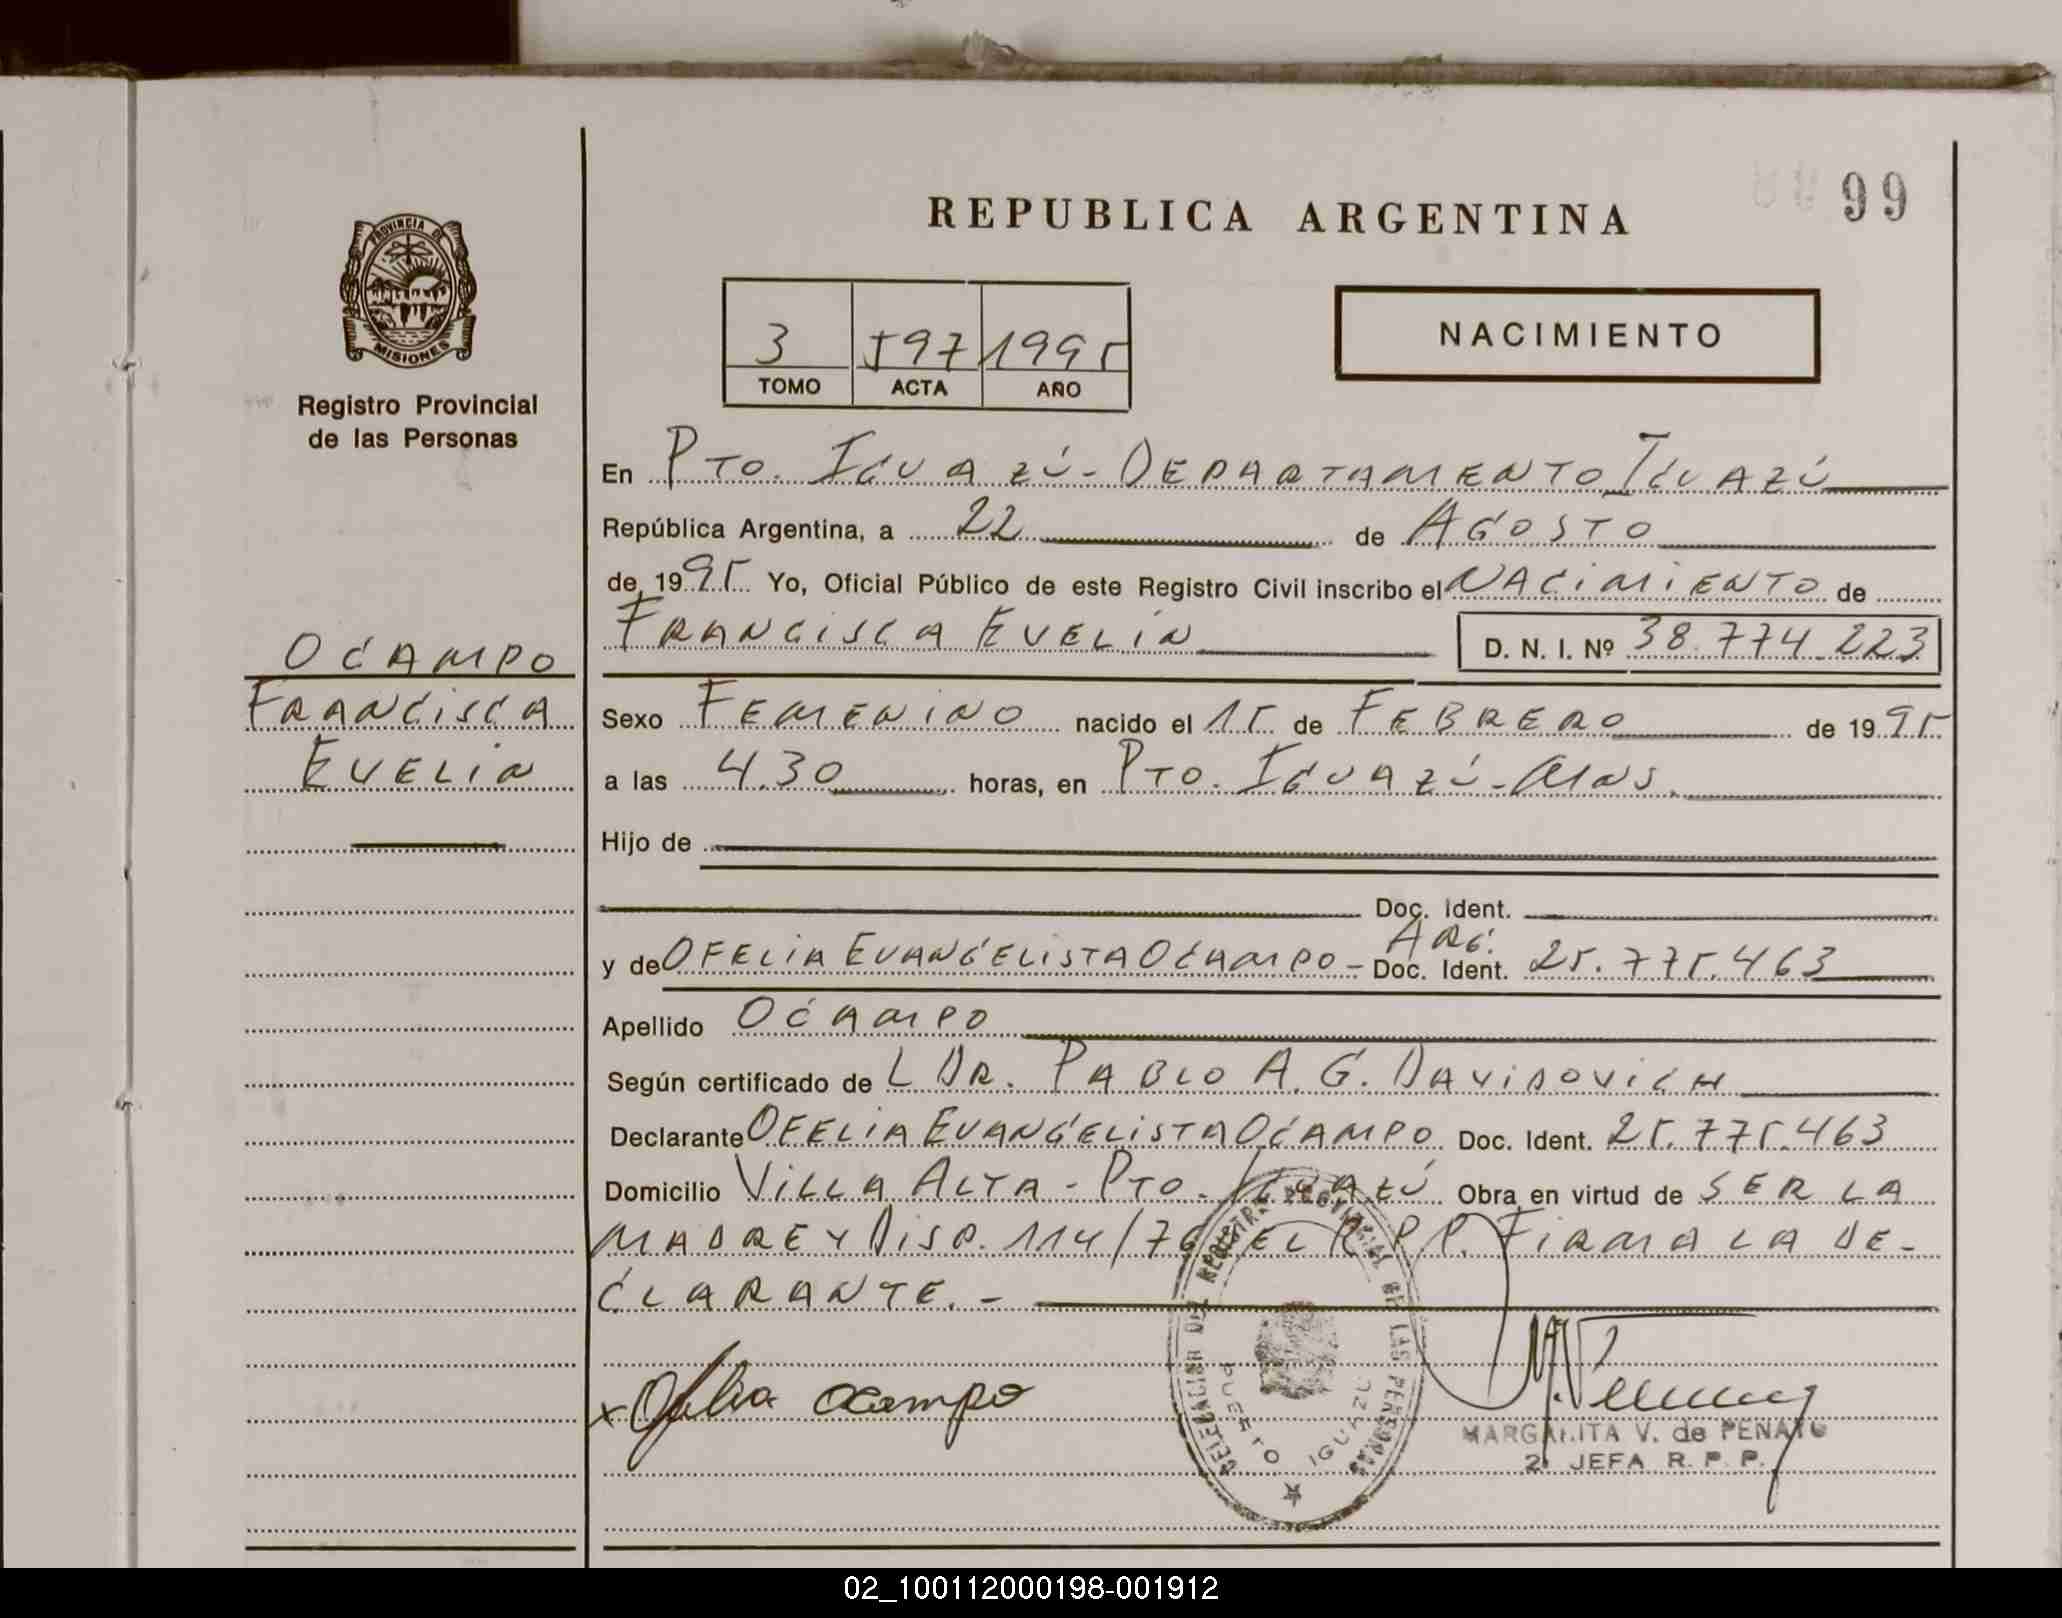 99
REPUBLICA ARGENTINA
PROVINCIA DE
MISIONES
Registro Provincial
de las Personas
3 597 1995
TOMO ACTA AÑO
NACIMIENTO
En PTO. IGUAZÚ - DEPARTAMENTO IGUAZÚ
República Argentina, a 22 de AGOSTO
de 1995 Yo, Oficial Público de este Registro Civil inscribo el NACIMIENTO de
FRANCISCA EVELIN D. N. I. Nº 38.774.223
OCAMPO
FRANCISCA
EVELIN
Sexo FEMENINO nacido el 15 de FEBRERO de 1995
a las 4.30 horas, en PTO. IGUAZÚ - MNS.
Hijo de
Doc. Ident.
y de OFELIA EVANGELISTA OCAMPO - ARG. Doc. Ident. 25.775.463
Apellido OCAMPO
Según certificado de L DR. PABLO A. G. DAVIDOVICH
Declarante OFELIA EVANGELISTA OCAMPO Doc. Ident. 25.775.463
Domicilio VILLA ALTA - PTO. IGUAZÚ Obra en virtud de SER LA
MADRE Y DISP. 114/76 DEL R.P.P. FIRMA LA DE-
CLARANTE. -
x Ofelia Ocampo
DELEGACION DEL REGISTRO PROVINCIAL DE LAS PERSONAS
PUERTO IGUAZU
MARGARITA V. de PENAYO
2ª JEFA R. P. P.
02_100112000198-001912